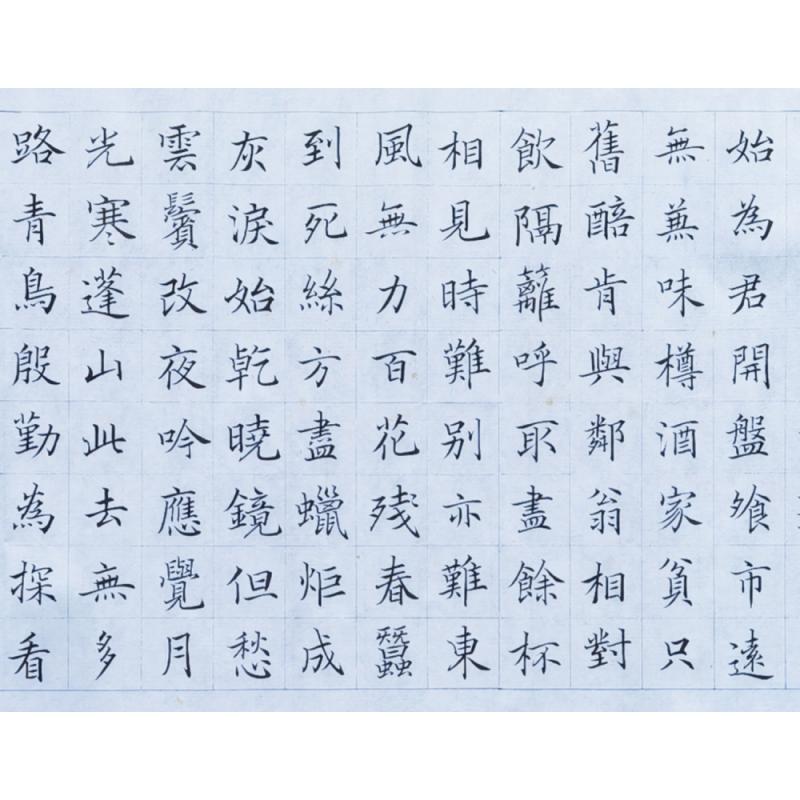 始為君開盤飧市遠
無兼味樽酒家貧只
舊醅肯與鄰翁相對
飲隔籬呼取盡餘杯
相見時難別亦難東
風無力百花殘春蠶
到死絲方盡蠟炬成
灰淚始乾曉鏡但愁
雲鬢改夜吟應覺月
光寒蓬山此去無多
路青鳥殷勤為探看